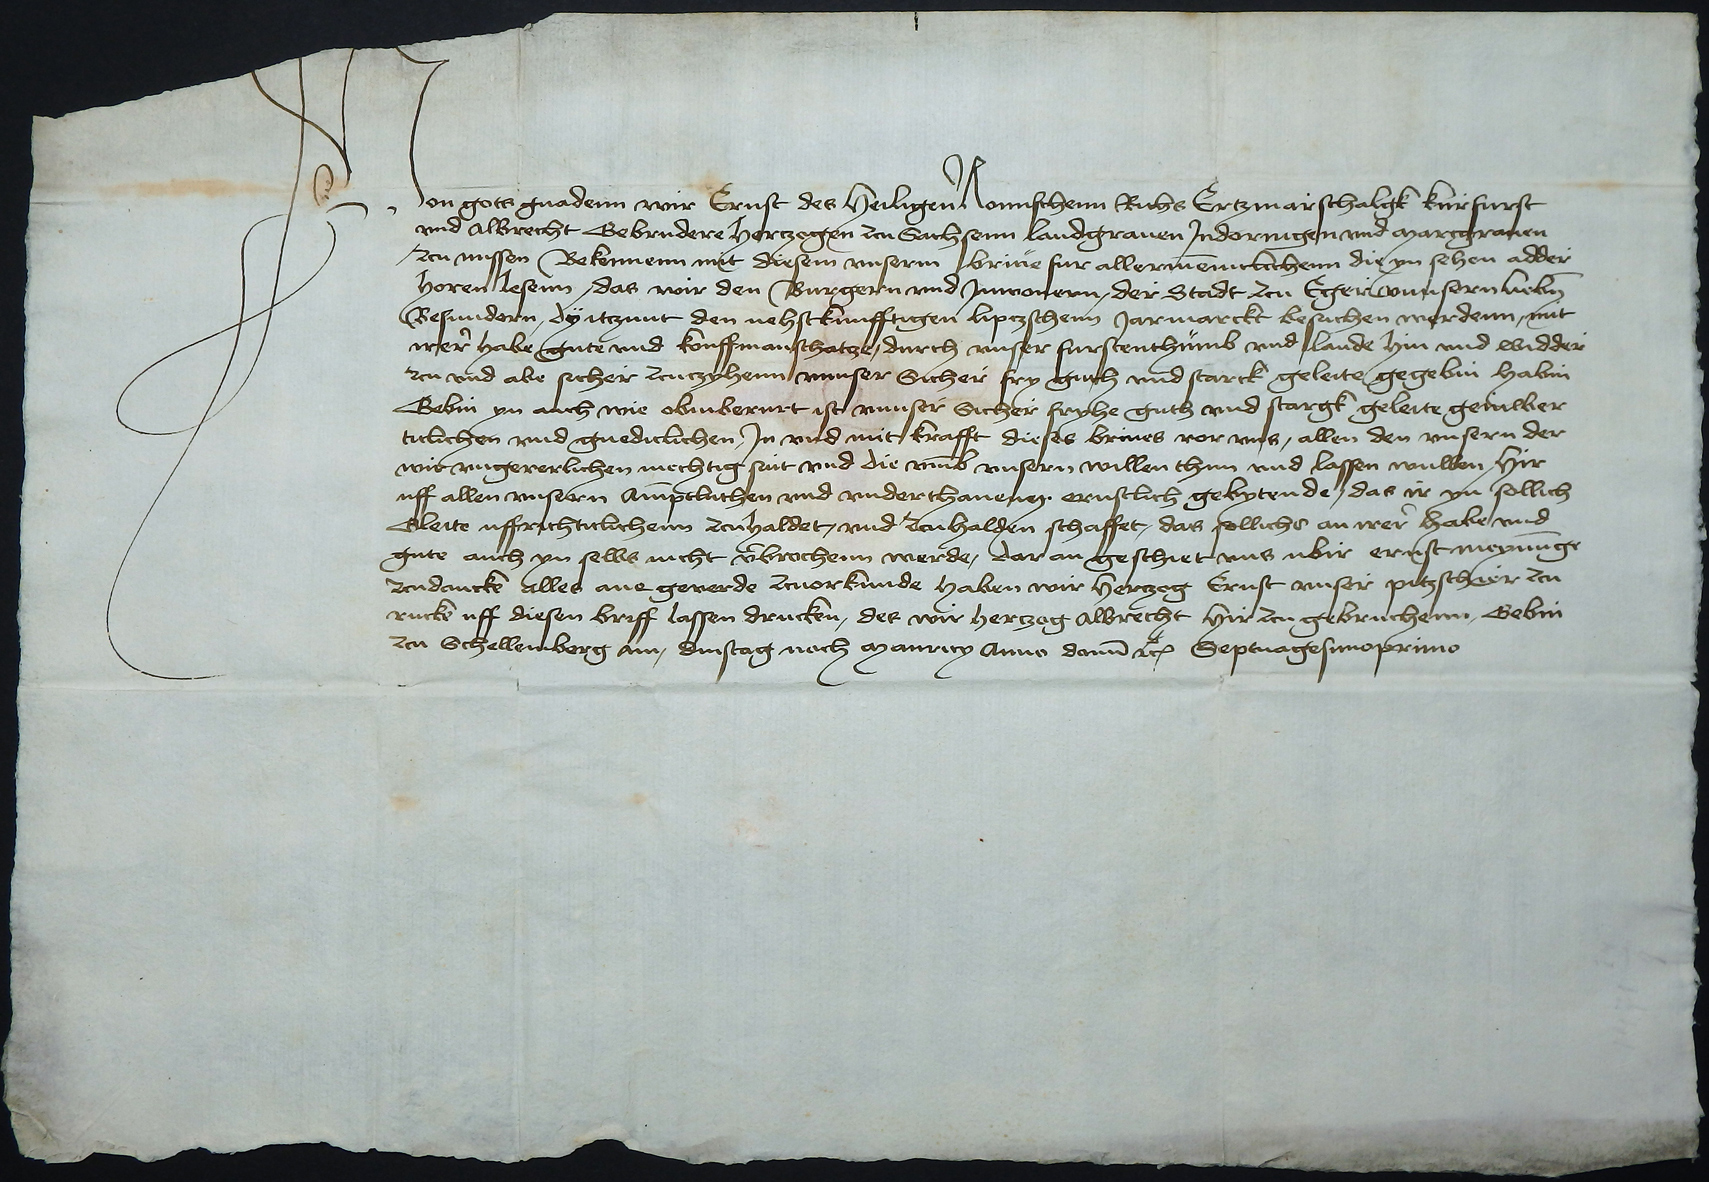 Von gots gnadenn wir Ernst des Heiligen Romischenn Richs Ertzmarschalgk kurfurst
vnd Albrecht Gebrudere Hertzogen zcu Sachsenn landgrauen Indoringen vnd Marcgrauen
zcu missen Bekennenn mit diesem vnserm briue fur allermeniclichenn die yn sehen adder
horen lesenn, das wir den Burgern vnd Inwonern, der Stadt zcu Eger vnnsern liebn
Besundern, dy itzunt den nehstkunfftigen lipczschenn Jarmarckt besuchen werdenn, mit
irer habe gute vnd kouffmanschatze, durch vnser furstenthumb vnd lande hin vnd widder
zcu vnd abe sicher zcuczyhenn vnnser Sicher fry guth vnd starck geleite gegebin habin
Gebin yn auch wie obinberurt ist vnnser Sicher fryhe guth vnd stargk geleite gein­wer
ticlichen vnd gnediclichen, In vnd mit krafft dieses briues vor vns, allen den vnsern der
wir vngeuerlichen mechtig sint vnd die vmb vnsern willen thun vnd lassen wullen, Hir
uff allen vnsern Amptluthen vnd vnderthanen ernstlich gebytende, das ir yn sollich
Gleite uffrichticlichenn zcuhaldet, vnd zcuhalden schaffet, das sollichs an irer habe vnd
gute auch yn selbs nicht vbrochenn werde, dar an geschiet vns ubir ernst meynunge
zcudancke alles ane geuerde zcuorkunde haben wir Hertzog Ernst vnser pitzschir zcu
rucke uff diesen briff lassen drucken, des wir hertzog Albrecht hir zcu gebruchenn, Gebin
zcu Schellemberg am, dinstag noch Mauricy Anno domi etc Septuagesimoprimo